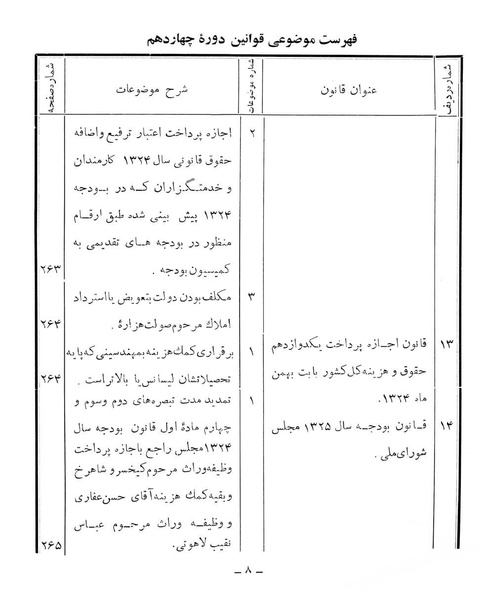 فهرست موضوعی قوانین دورهٔ چهاردهم
شماره ردیف
عنوان قانون
شماره موضوعات
شرح موضوعات
شماره صفحه
۲
اجازه پرداخت اعتبار ترفیع واضافه
حقوق قانونی سال ۱۳۲۴ کارمندان
و خدمتگزاران که در بودجه
۱۳۲۴ پیش بینی شده طبق ارقام
منظور در بودجه های تقدیمی به
کمیسیون بودجه .
۲۶۳
۳
مکلف بودن دولت بتعویض یا استرداد
املاک مرحوم صولت هزاره .
۲۶۴
۱۳
قانون اجازه پرداخت یکدوازدهم
حقوق و هزینه کل کشور بابت بهمن
ماه ۱۳۲۴.
۱
برقراری کمک هزینه بمهندسینی که پایه
تحصیلاتشان لیسانس یا بالاتر است .
۲۶۴
۱۴
قانون بودجه سال ۱۳۲۵ مجلس
شورای ملی .
۱
تمدید مدت تبصره‌های دوم وسوم و
چهارم مادهٔ اول قانون بودجه سال
۱۳۲۴ مجلس راجع باجازه پرداخت
وظیفه وراث مرحوم کیخسرو شاهرخ
و بقیه کمک هزینه آقای حسن غفاری
و وظیفه وراث مرحوم عباس
نقیب لاهوتی.
۲۶۵
– ۸ –